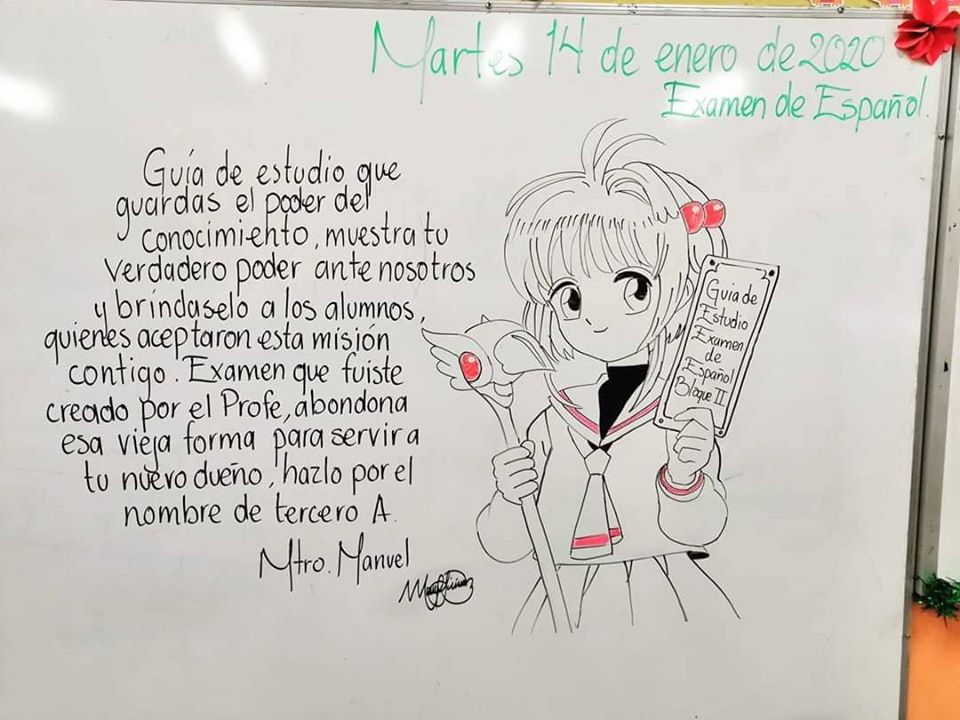 Martes 14 de enero de 2020
Examen de Español.
Guía de estudio que
guardas el poder del
conocimiento, muestra tu
verdadero poder ante nosotros
y bríndaselo a los alumnos,
quienes aceptaron esta misión
contigo. Examen que fuiste
creado por el Profe, abondona
esa vieja forma para servir a
tu nuevo dueño, hazlo por el
nombre de tercero A.
Mtro. Manuel
Guia de
Estudio
Examen
de
Español
Bloque II